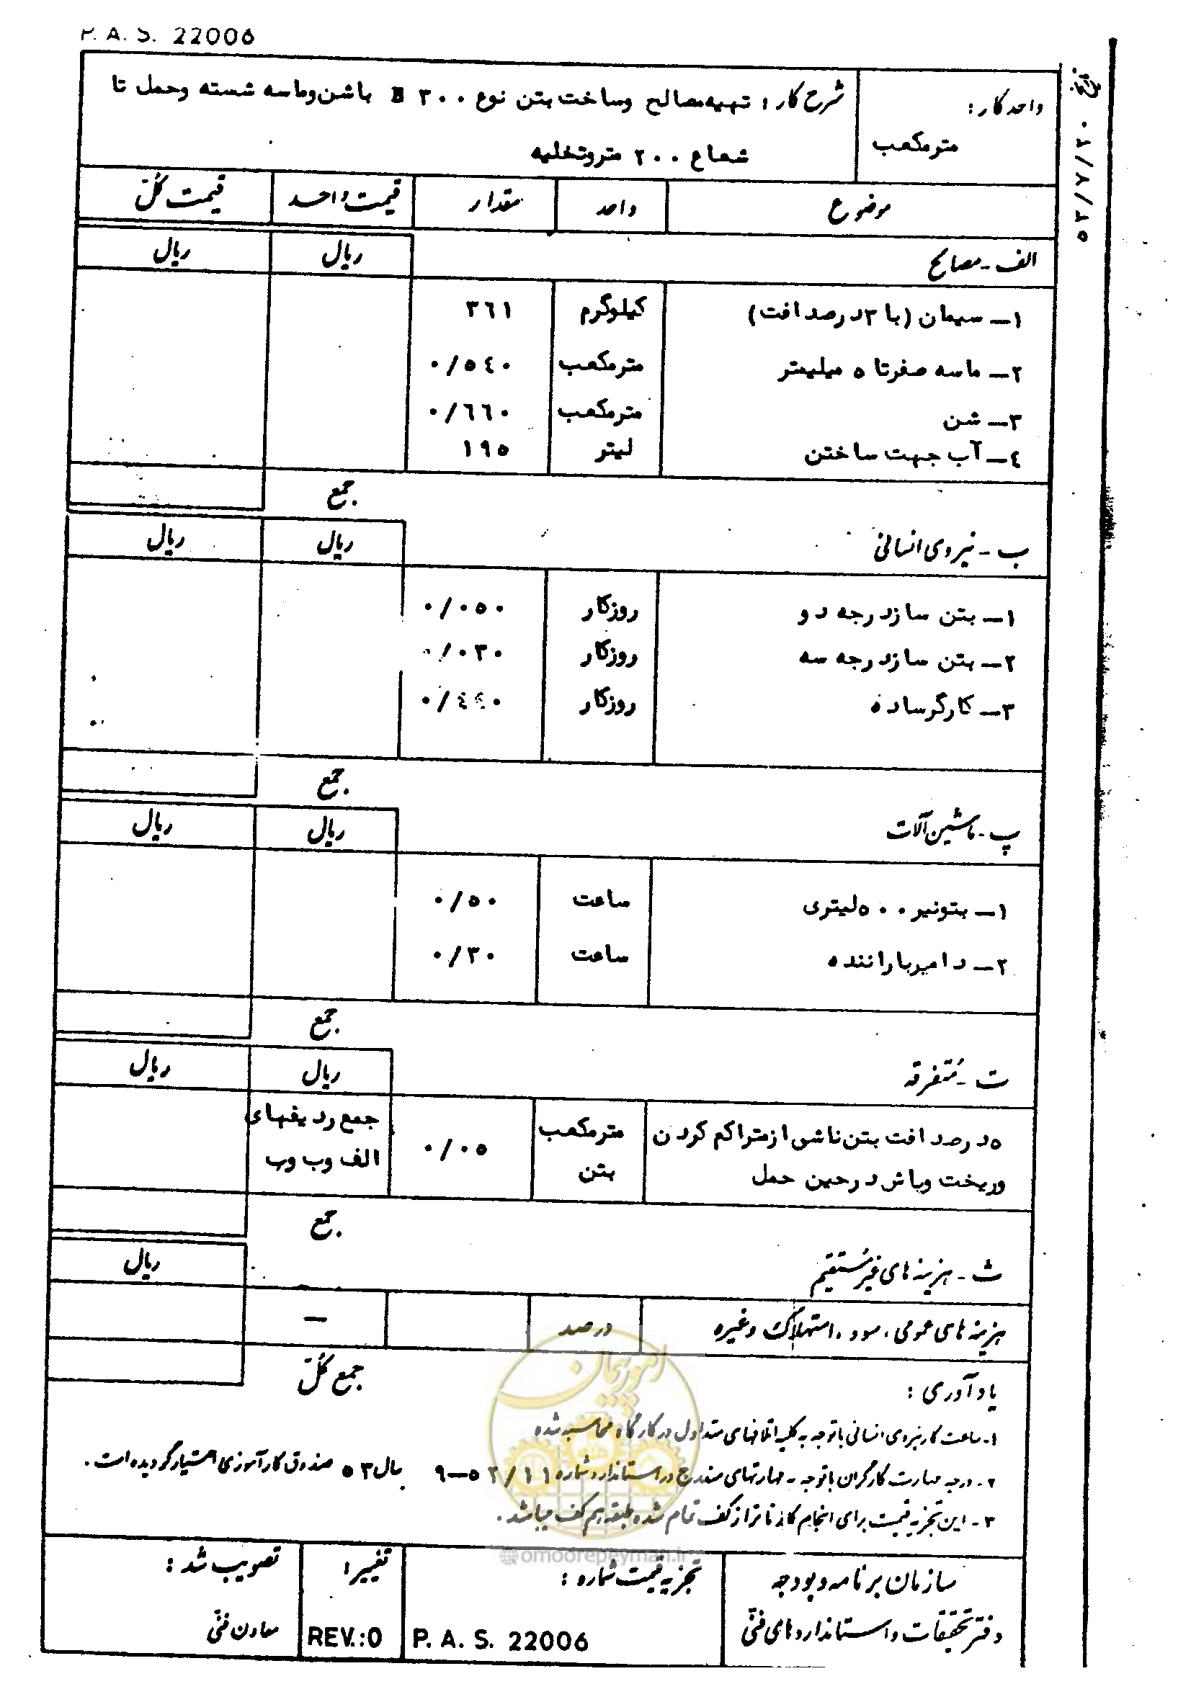 P. A. S. 22006
تاریخ ۵۳/۷/۳۰
واحد کار :
مترمکعب
شرح کار : تهیه مصالح وساخت بتن نوع B ۳۰۰ باشن وماسه شسته وحمل تا
شعاع ۲۰۰ متروتخلیه
موضوع واحد مقدار قیمت واحد قیمت کل
الف - مصالح ریال ریال
۱- سیمان (با ۳درصد افت) کیلوگرم ۳۶۱
۲- ماسه صفرتا ۵ میلیمتر مترمکعب ۰/۵۴۰
۳- شن مترمکعب ۰/۶۶۰
۴- آب جهت ساختن لیتر ۱۹۵
جمع
ب - نیروی انسانی ریال ریال
۱- بتن ساز درجه دو روزکار ۰/۰۵۰
۲- بتن ساز درجه سه روزکار ۰/۰۳۰
۳- کارگر ساده روزکار ۰/۴۴۰
جمع
پ - ماشین آلات ریال ریال
۱- بتونیر ۵۰۰ لیتری ساعت ۰/۵۰
۲- دامپر با راننده ساعت ۰/۳۰
جمع
ت - متفرقه ریال ریال
۵درصد افت بتن ناشی ازمتراکم کردن مترمکعب ۰/۰۵ جمع ردیفهای
وریخت وپاش درحین حمل بتن الف وب وپ
جمع
ث - هزینه های غیرمستقیم ریال
هزینه های عمومی ، سود ، استهلاک وغیره درصد —
جمع کل
یادآوری :
۱- ساعت کارنیروی انسانی باتوجه به کلیه اتلافهای متداول درکارگاه محاسبه شده
۲- درجه مهارت کارگران باتوجه به مهارتهای مندرج دراستاندارد شماره ۹-۵۲/۱۱ سال ۵۳ صندوق کارآموزی اختیار گردیده است .
۳- این تجزیه قیمت برای انجام کار تا تراز کف تمام شده طبقه هم کف میباشد .
امور پیمان
@omoorepeyman.ir
سازمان برنامه وبودجه
دفتر تحقیقات واستانداردهای فنی
تجزیه قیمت شماره :
P. A. S. 22006
تغییر :
REV.:0
تصویب شد :
معاون فنی